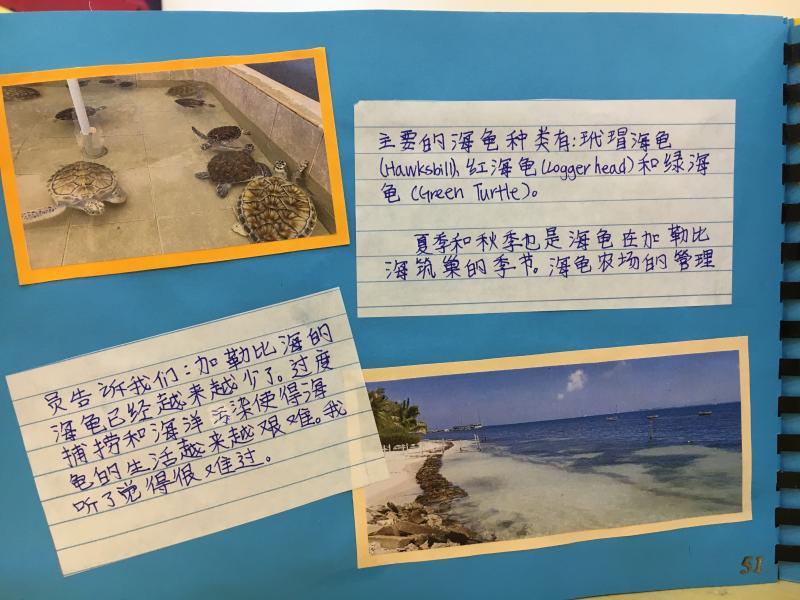 主要的海龟种类有:玳瑁海龟
(Hawksbill)、红海龟(Loggerhead)和绿海
龟 (Green Turtle)。
夏季和秋季也是海龟在加勒比
海筑巢的季节。海龟农场的管理
员告诉我们:加勒比海的
海龟已经越来越少了。过度
捕捞和海洋污染使得海
龟的生活越来越艰难。我
听了觉得很难过。
51